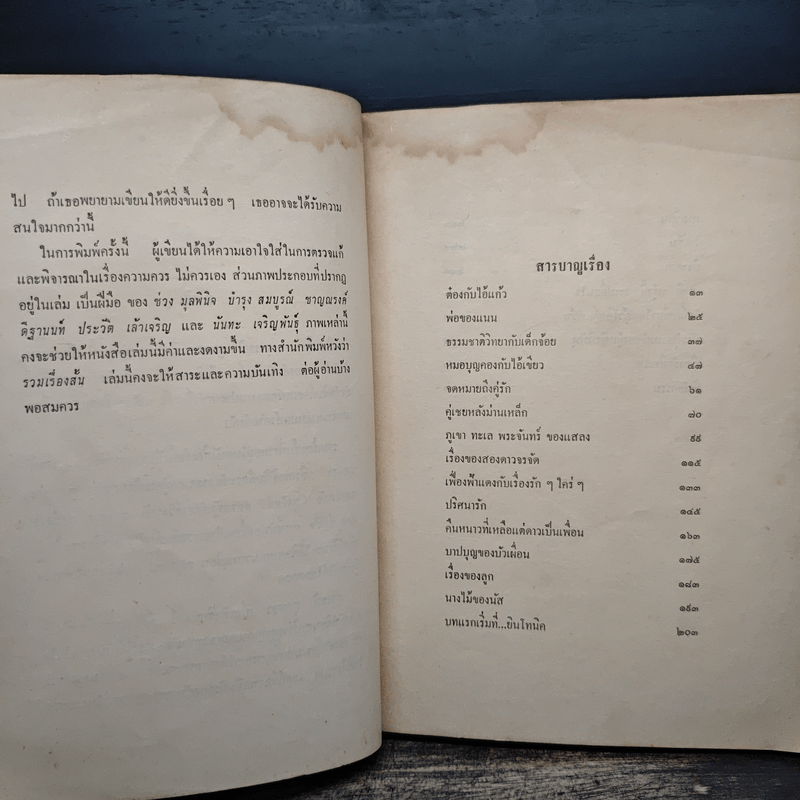 ไป ถ้าเธอพยายามเขียนให้ดียิ่งขึ้นเรื่อย ๆ เธออาจจะได้รับความ
สนใจมากกว่านี้
ในการพิมพ์ครั้งนี้ ผู้เขียนได้ให้ความเอาใจใส่ในการตรวจแก้
และพิจารณาในเรื่องความควร ไม่ควรเอง ส่วนภาพประกอบที่ปรากฏ
อยู่ในเล่ม เป็นฝีมือ ของ ช่วง มูลพินิจ บำรุง สมบูรณ์ ชาญณรงค์
ดิฐานนท์ ประวัติ เล้าเจริญ และ นันทะ เจริญพันธุ์ ภาพเหล่านี้
คงจะช่วยให้หนังสือเล่มนี้มีค่าและงดงามขึ้น ทางสำนักพิมพ์หวังว่า
รวมเรื่องสั้น เล่มนี้คงจะให้สาระและความบันเทิง ต่อผู้อ่านบ้าง
พอสมควร
สารบาญเรื่อง
ต๋องกับไอ้แก้ว ๑๓
พ่อของแนน ๒๕
ธรรมชาติวิทยากับเด็กจ้อย ๓๗
หมอบุญคองกับไอ้เขียว ๔๗
จดหมายถึงคู่รัก ๖๑
คู่เชยหลังม่านเหล็ก ๗๐
ภูเขา ทะเล พระจันทร์ ของแสลง ๙๙
เรื่องของสองดาวจรจัด ๑๑๕
เฟื่องฟ้าแดงกับเรื่องรัก ๆ ใคร่ ๆ ๑๓๓
ปริศนารัก ๑๔๕
คืนหนาวที่เหลือแต่ดาวเป็นเพื่อน ๑๖๓
บาปบุญของบัวเผื่อน ๑๗๕
เรื่องของลูก ๑๘๓
นางไม้ของนัส ๑๙๓
บทแรกเริ่มที่...ยินโทนิค ๒๐๓